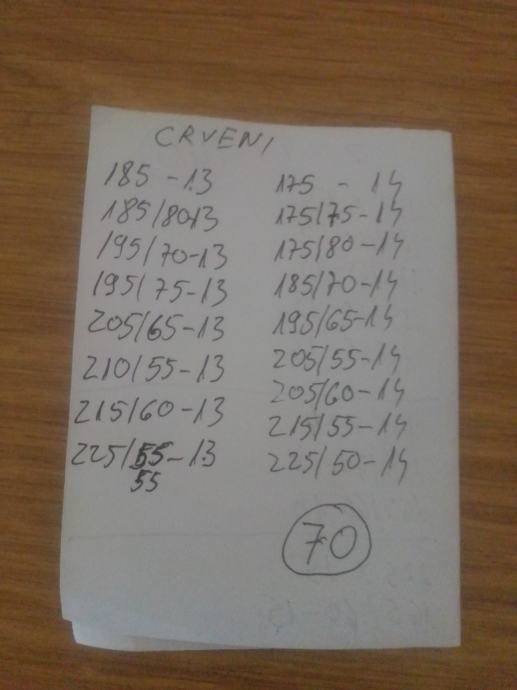 CRVENI
185 - 13
185/80-13
195/70-13
195/75-13
205/65-13
210/55-13
215/60-13
225/55-13
55
175 - 14
175/75-14
175/80-14
185/70-14
195/65-14
205/55-14
205/60-14
215/55-14
225/50-14
70